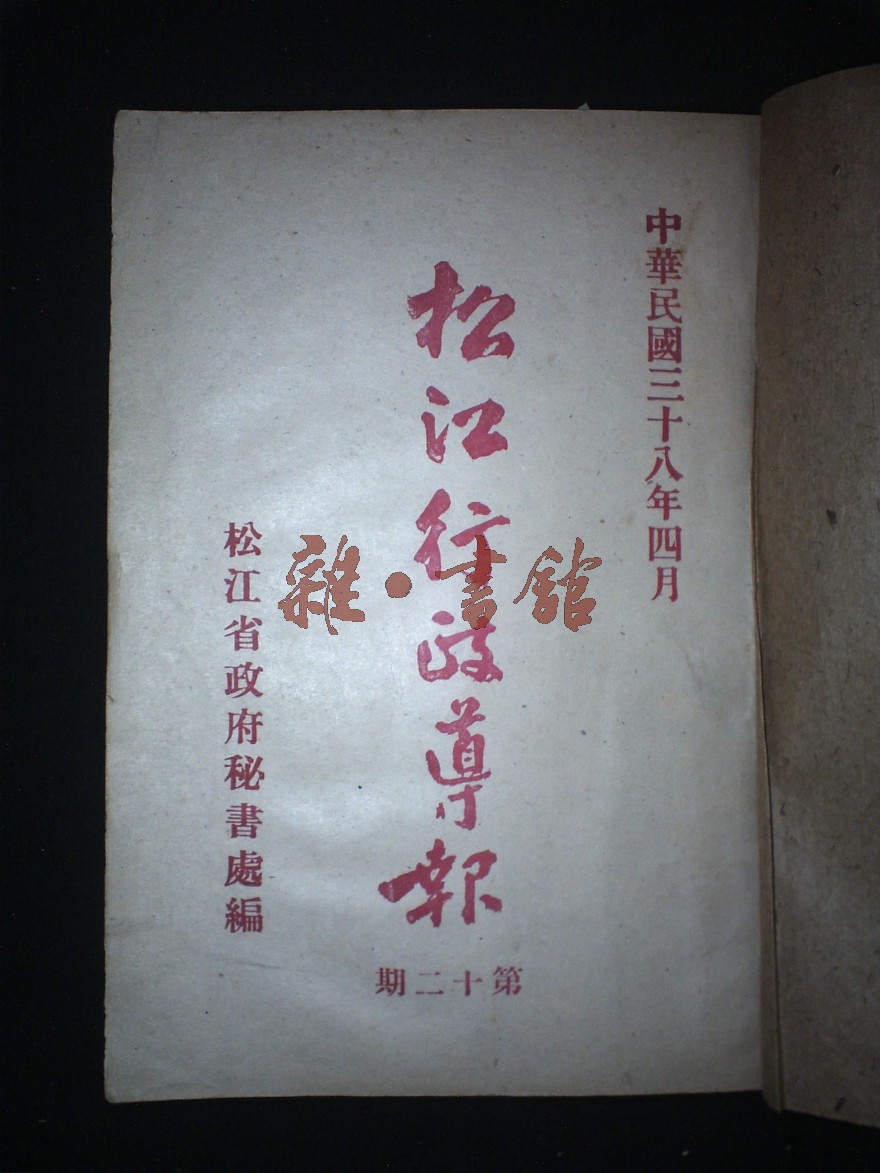 中華民國三十八年四月
松江行政導報
第十二期
松江省政府秘書處編
雜·書館